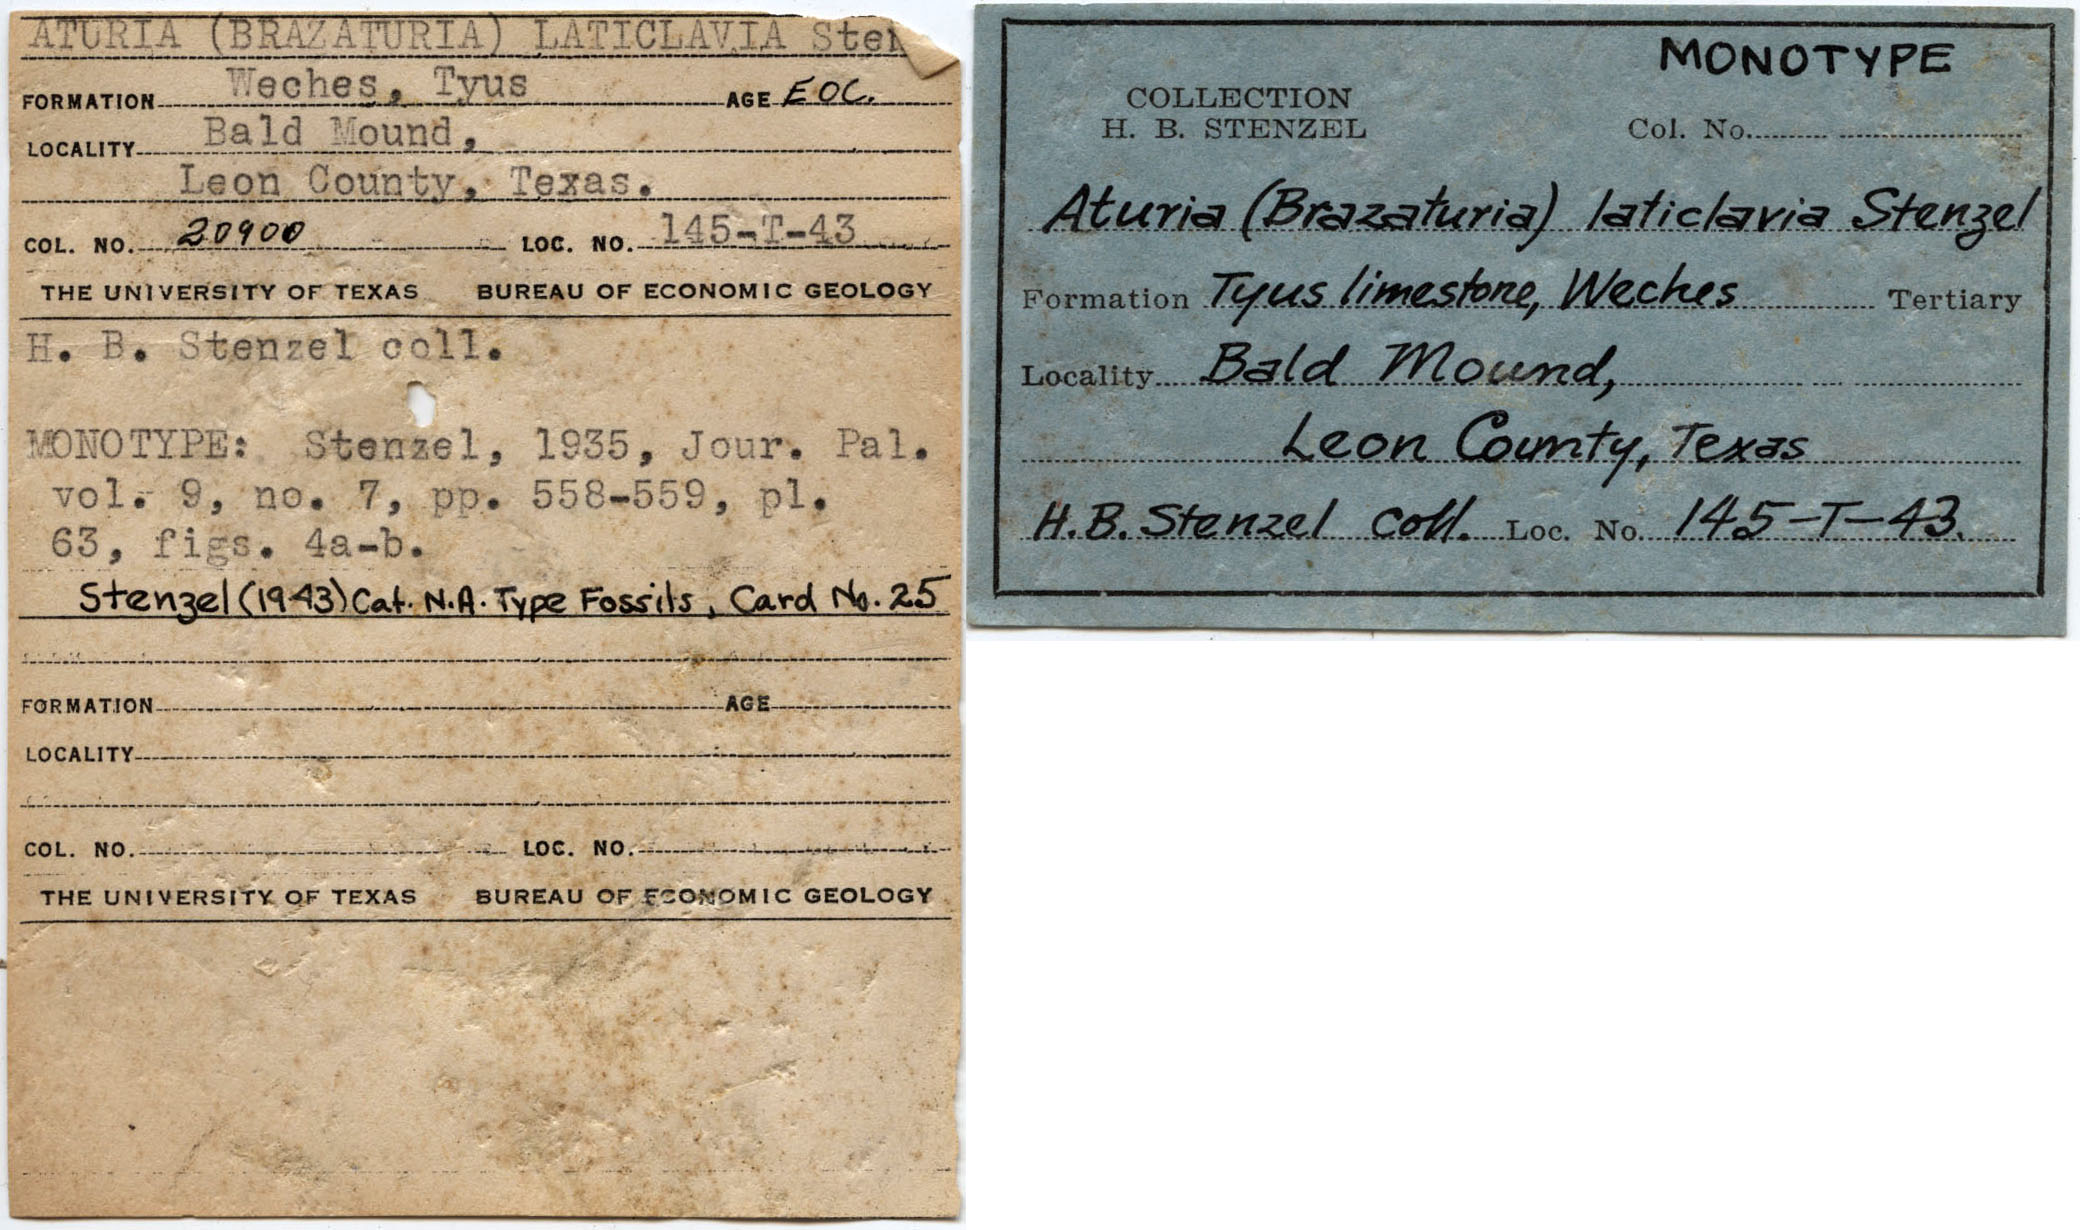 ATURIA (BRAZATURIA) LATICLAVIA Sten
FORMATION Weches, Tyus AGE EOC.
LOCALITY Bald Mound,
Leon County, Texas.
COL. NO. 20900 LOC. NO. 145-T-43
THE UNIVERSITY OF TEXAS BUREAU OF ECONOMIC GEOLOGY
H. B. Stenzel coll.
MONOTYPE: Stenzel, 1935, Jour. Pal.
vol. 9, no. 7, pp. 558-559, pl.
63, figs. 4a-b.
Stenzel (1943) Cat. N.A. Type Fossils, Card No. 25
FORMATION AGE
LOCALITY
COL. NO. LOC. NO.
THE UNIVERSITY OF TEXAS BUREAU OF ECONOMIC GEOLOGY
MONOTYPE
COLLECTION
H. B. STENZEL Col. No.
Aturia (Brazaturia) laticlavia Stenzel
Formation Tyus limestone, Weches Tertiary
Locality Bald Mound,
Leon County, Texas
H.B. Stenzel coll. Loc. No. 145-T-43.